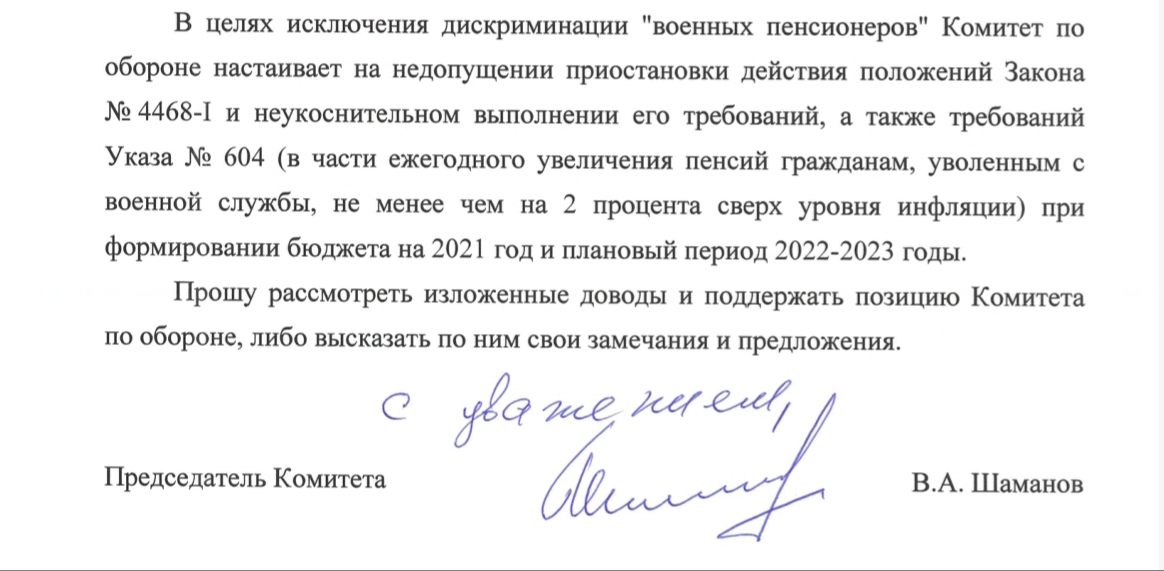 В целях исключения дискриминации "военных пенсионеров" Комитет по
обороне настаивает на недопущении приостановки действия положений Закона
№ 4468-I и неукоснительном выполнении его требований, а также требований
Указа № 604 (в части ежегодного увеличения пенсий гражданам, уволенным с
военной службы, не менее чем на 2 процента сверх уровня инфляции) при
формировании бюджета на 2021 год и плановый период 2022-2023 годы.
Прошу рассмотреть изложенные доводы и поддержать позицию Комитета
по обороне, либо высказать по ним свои замечания и предложения.
с уважением,
Председатель Комитета В.А. Шаманов